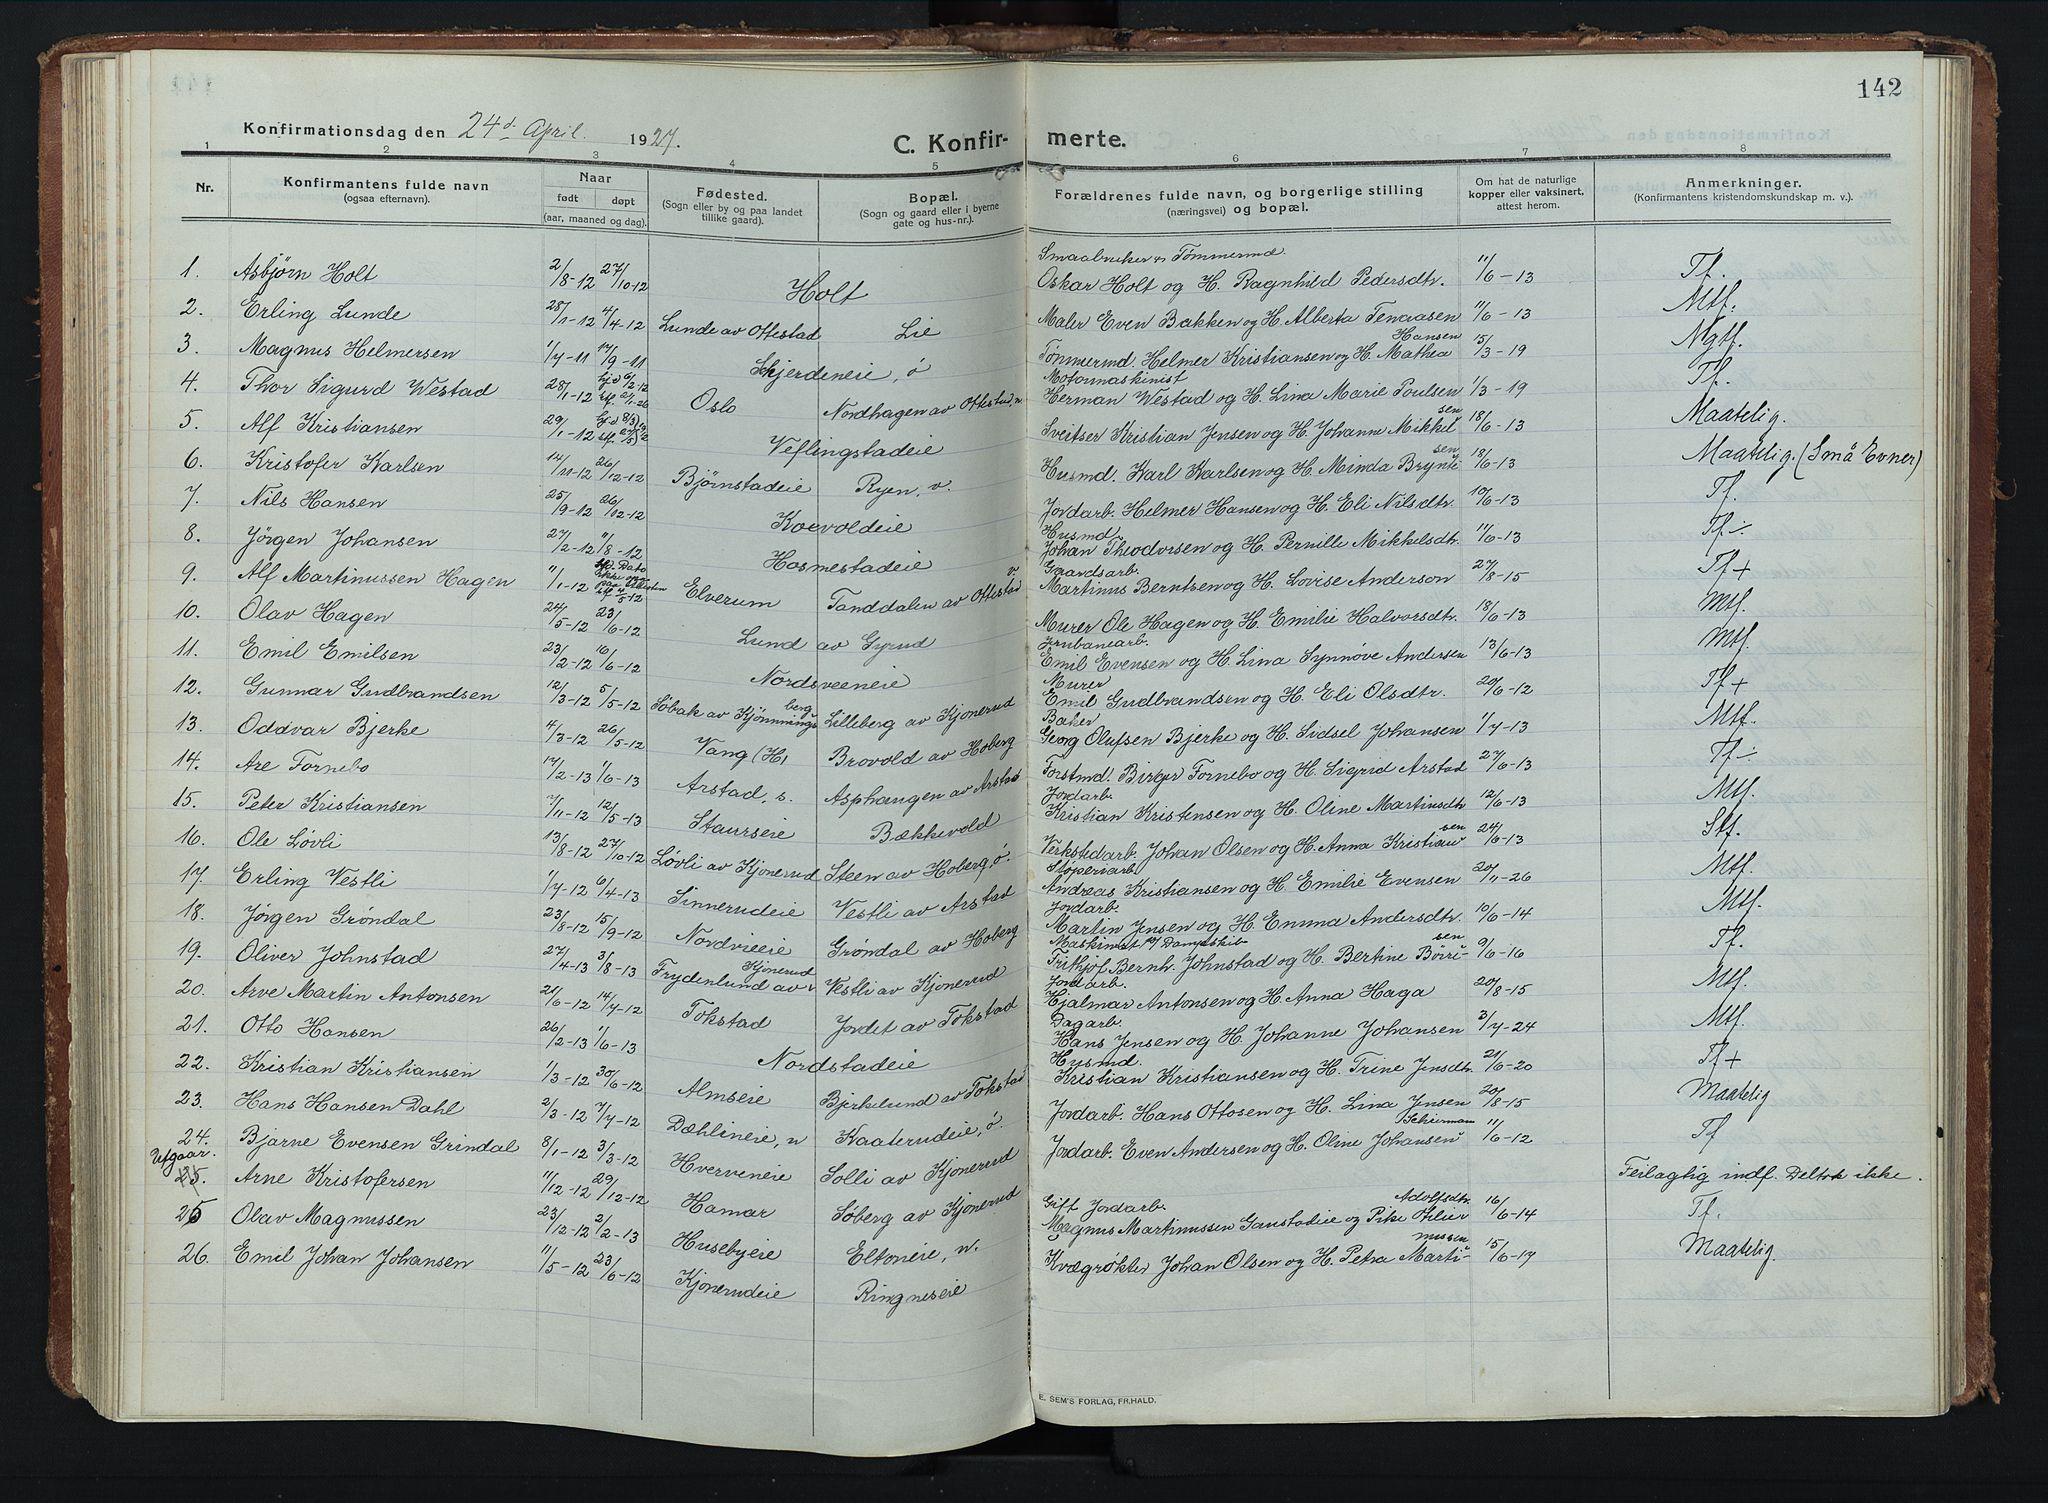 142
Konfirmationsdag den 24d. April. 1927.
C. Konfir- merte.
1 2 3 4 5 6 7 8
Nr. Konfirmantens fulde navn (ogsaa efternavn). Naar født døpt (aar, maaned og dag). Fødested. (Sogn eller by og paa landet tillike gaard). Bopæl. (Sogn og gaard eller i byerne gate og hus-nr.). Forældrenes fulde navn, og borgerlige stilling (næringsvei) og bopæl. Om hat de naturlige kopper eller vaksinert, attest herom. Anmerkninger. (Konfirmantens kristendomskundskap m. v.).
1. Asbjørn Holt 2/8-12 27/10-12 Holt Smaabruker & Tømmermd. Oskar Holt og H. Ragnhild Pedersdtr. 11/6-13 Tf.
2. Erling Lunde 28/1-12 4/4-12 Lunde av Ottestad Lie Maler Even Bakken og H. Alberta Tenaasen 11/6-13 Mtf.
3. Magnus Helmersen 1/7-11 17/9-11 Skjerdeneie, ø Tømmermd. Helmer Kristiansen og H. Mathea Hansen 15/3-19 Mgtf.
4. Thor Sigurd Westad 28/1-12 Oslo Nordhagen av Ottestad, n Motormaskinist Herman Westad og H. Lina Marie Poulsen 1/3-19 Tf.
5. Alf Kristiansen 29/1-12 Veflingstadeie Sveitser Kristian Jensen og H. Johanne Mikkelsen 18/6-13 Maatelig.
6. Kristofer Karlsen 14/10-12 26/12-12 Bjørnstadeie Ryen, v. Husmd. Karl Karlsen og H. Minda Bryntesen 18/6-13 Maatelig. (Små Evner)
7. Nils Hansen 25/9-12 26/12-12 Korvoldeie Jordarb. Helmer Hansen og H. Eli Nilsdtr. 10/6-13 Tf.
8. Jörgen Johansen 27/2-12 11/8-12 Hosmestadeie Husmd. Johan Theodorsen og H. Pernille Mikkelsdtr. 11/6-13 Tf÷
9. Alf Martinussen Hagen 11/1-12 Elverum Tanddalen av Ottestad v. Gaardsarb. Martinus Berntsen og H. Lovise Anderson 27/8-15 Tf+
10. Olav Hagen 24/5-12 23/6-12 Lund av Gyrud Murer Ole Hagen og H. Emilie Halvorsdtr. 18/6-13 Mtf.
11. Emil Emilsen 23/2-12 16/6-12 Nordsveeneie Jernbanearb. Emil Evensen og H. Lina Synnøve Andersen 13/6-13 Mtf.
12. Gunnar Gudbrandsen 12/3-12 5/5-12 Søbak av Kjønningsberg Lilleberg av Kjonerud Murer Emil Gudbrandsen og H. Eli Olsdtr. 20/6-12 Tf+
13. Oddvar Bjerke 4/3-12 26/5-12 Vang (H) Brovold av Hoberg Baker Georg Olufsen Bjerke og H. Sidsel Johansen 1/7-13 Mtf.
14. Are Fornebo 17/2-13 1/6-13 Arstad, s. Asphaugen av Arstad Forstmd. Birger Fornebo og H. Sigrid Arstad 27/6-13 Tf÷
15. Peter Kristiansen 7/11-12 12/5-13 Staurseie Bækkevold Jordarb. Kristian Kristensen og H. Oline Martinsdtr. 12/6-13 Mtf.
16. Ole Løvli 13/8-12 27/10-12 Løvli av Kjonerud Steen av Hoberg, ø. Verkstedarb. Johan Olsen og H. Anna Kristiansen 24/6-13 Stf.
17. Erling Vestli 1/7-12 6/4-13 Sinnerudeie Vestli av Arstad Støperiarb. Andreas Kristiansen og H. Emilie Evensen 20/11-26 Mtf.
18. Jørgen Grøndal 23/8-12 15/9-12 Nordvieeie Grøndal av Hoberg Jordarb. Martin Jensen og H. Emma Andersdtr. 10/6-14 Mtf.
19. Oliver Johnstad 27/4-13 3/8-13 Frydenlund av Kjonerud Vestli av Kjonerud Maskinist på Dampskib Frithjof Bernh. Johnstad og H. Bertine Børresen 9/6-16 Tf.
20. Arve Martin Antonsen 21/6-12 14/7-12 Tokstad Jordet av Tokstad Jordarb. Hjalmar Antonsen og H. Anna Haga 20/8-15 Mtf.
21. Otto Hansen 26/2-13 1/6-13 Nordstadeie Dagarb. Hans Jensen og H. Johanne Johansen 3/7-24 Mtf.
22. Kristian Kristiansen 1/3-12 30/6-12 Almseie Bjerkelund av Tokstad Husmd. Kristian Kristiansen og H. Trine Jensdtr. 21/6-20 Tf+
23. Hans Hansen Dahl 2/3-12 7/7-12 Dæhlineie, n Kaaterudeie, ø. Jordarb. Hans Ottosen og H. Lina Jensen 20/8-15 Maatelig
24. Bjarne Evensen Grindal 8/1-12 3/3-12 Hverveneie Solli av Kjonerud Jordarb. Even Andersen og H. Oline Johansen 11/6-12 Tf
Utgaar. 25. Arne Kristofersen 11/12-12 29/12-12 Hamar Søberg av Kjonerud Feilagtig indf. Deltok ikke.
25 Olav Magnussen 23/12-12 2/2-13 Husebyeie Eltoneie, n. Gift Jordarb. Magnus Martinussen Gaustadeie og Pike Otilie Adolfsdtr. 16/6-14 Tf.
26. Emil Johan Johansen 11/5-12 23/6-12 Kjonerudeie Ringneseie Kvægrøkter Johan Olsen og H. Petra Martinussen 15/6-17 Maatelig
E. SEM'S FORLAG, FR.HALD.